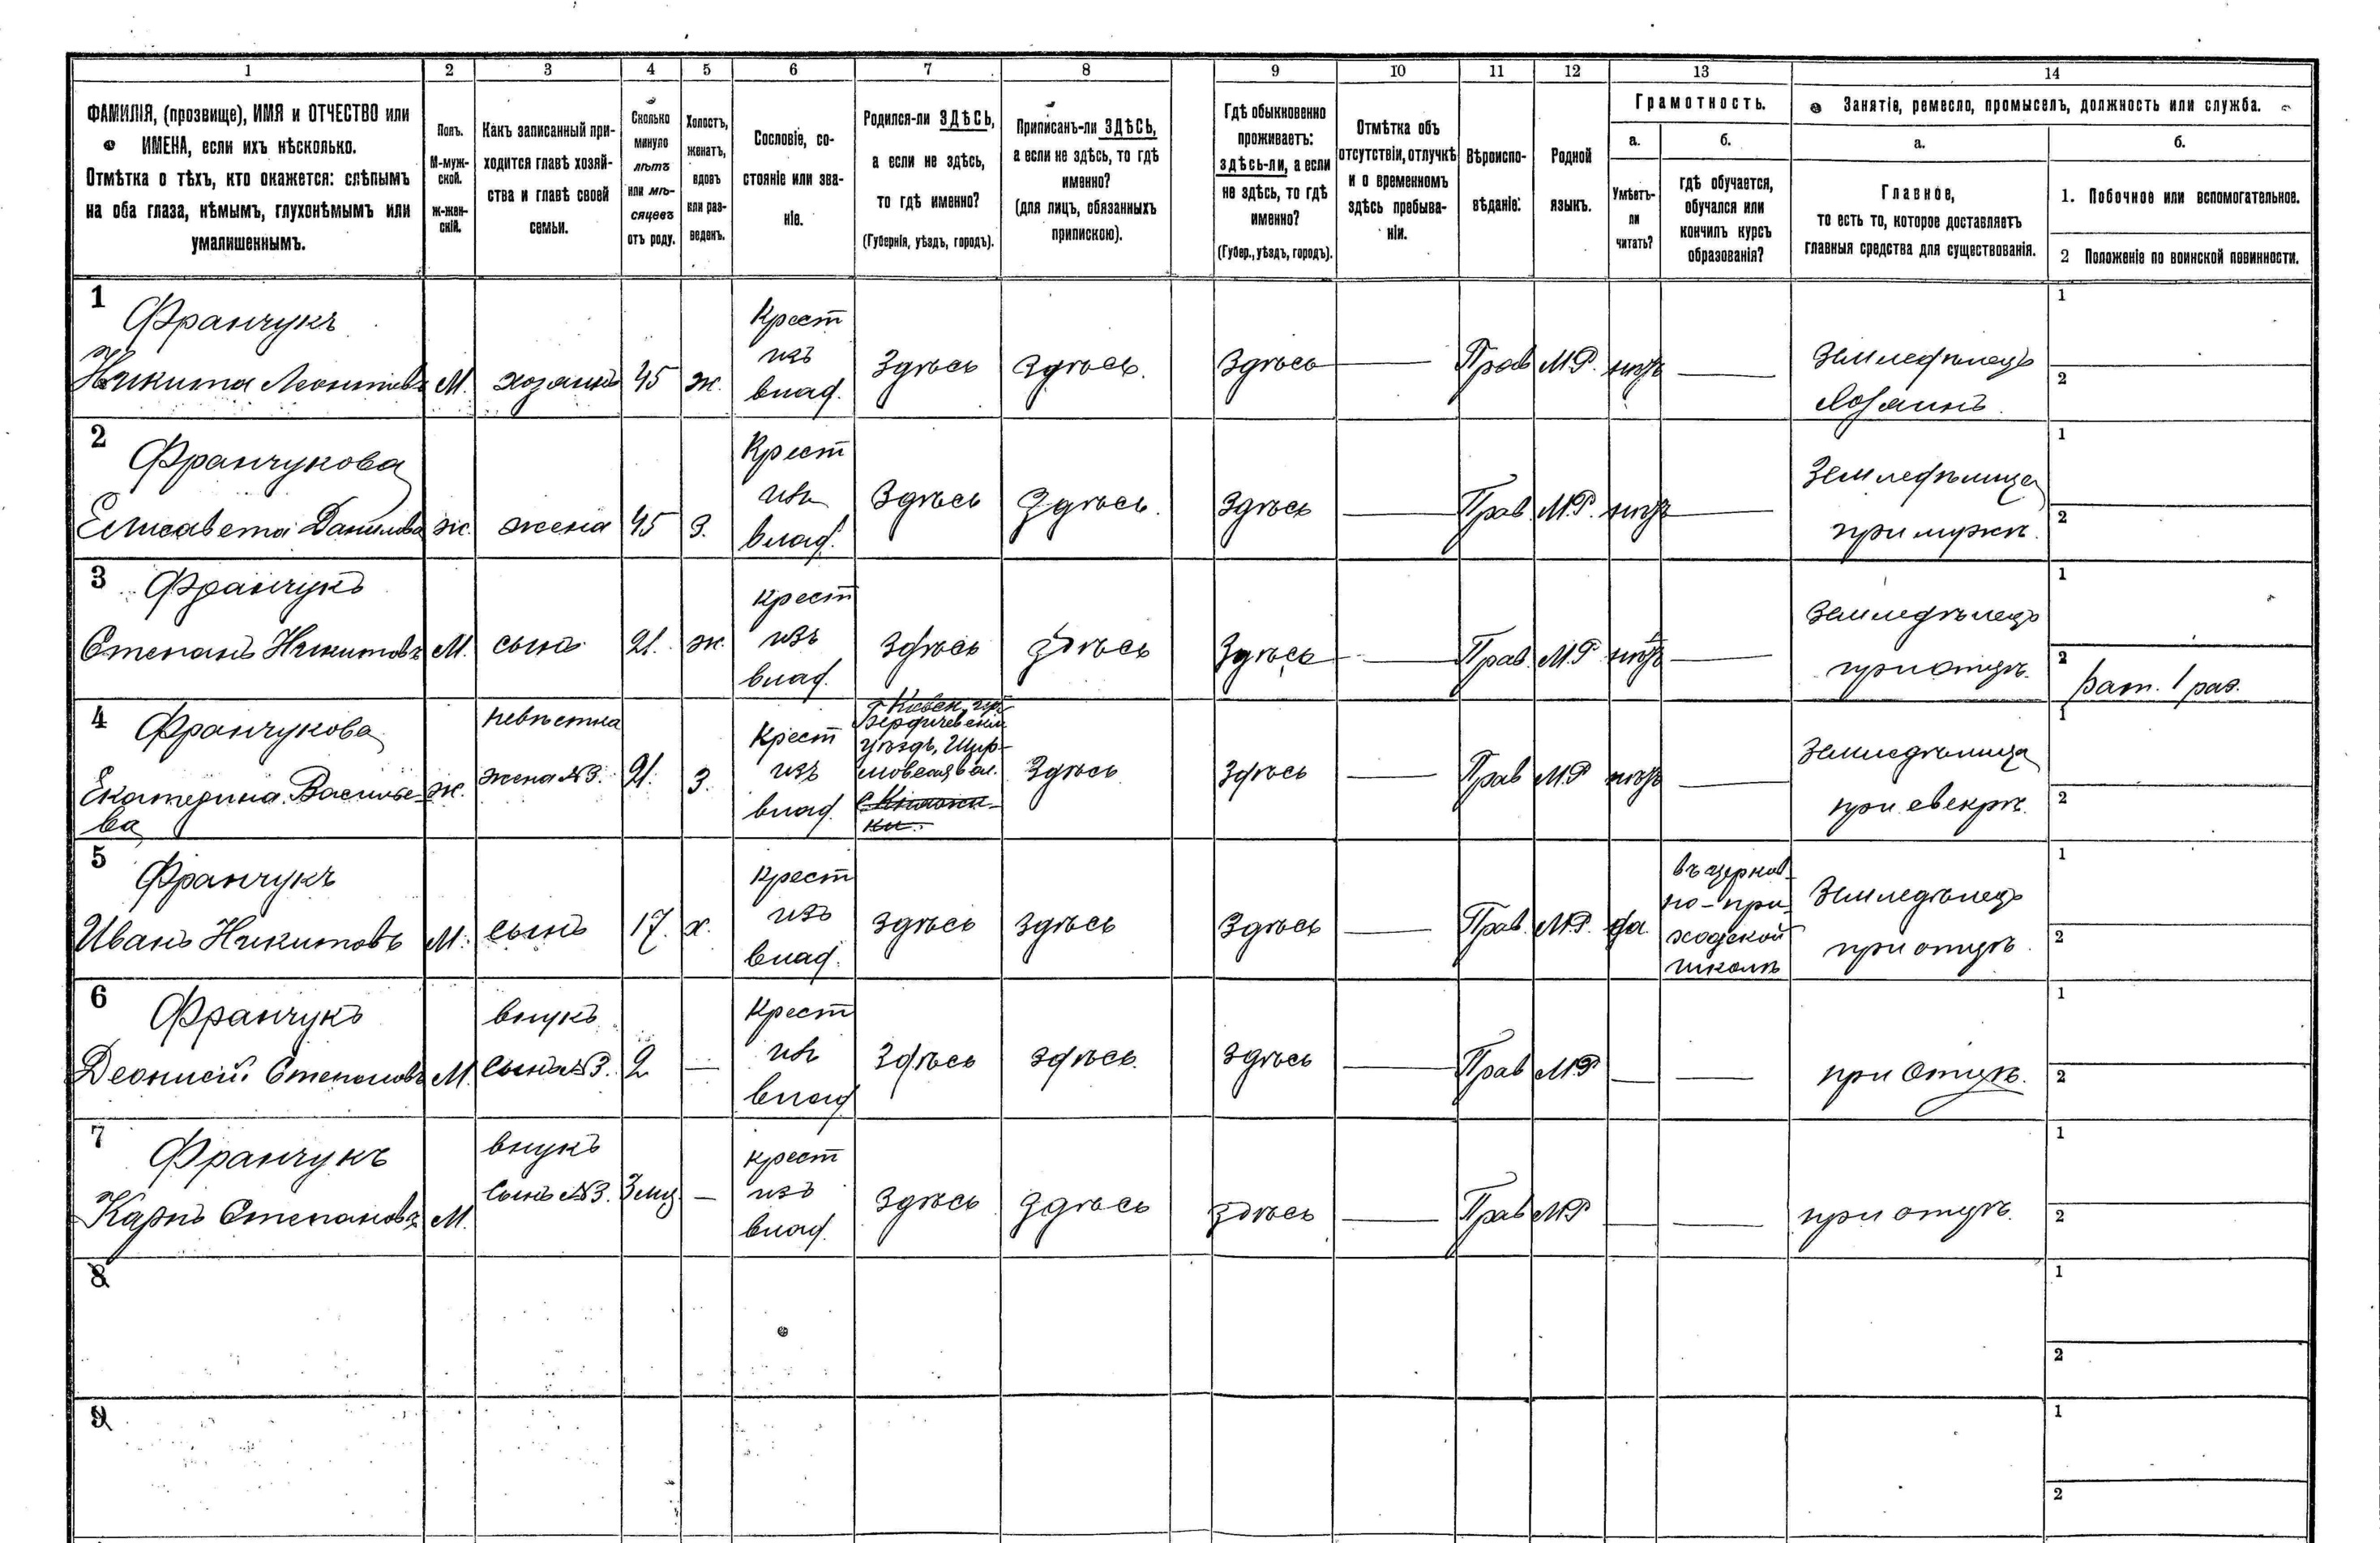 1 2 3 4 5 6 7 8 9 10 11 12 13 14
ФАМИЛІЯ, (прозвище), ИМЯ и ОТЧЕСТВО или
ИМЕНА, если ихъ нѣсколько.
Отмѣтка о тѣхъ, кто окажется: слѣпымъ
на оба глаза, нѣмымъ, глухонѣмымъ или
умалишеннымъ.
Полъ.
М-муж-
ской.
ж-жен-
скій.
Какъ записанный при-
ходится главѣ хозяй-
ства и главѣ своей
семьи.
Сколько
минуло
лѣтъ
или мѣ-
сяцевъ
отъ роду.
Холостъ,
женатъ,
вдовъ
или раз-
веденъ.
Сословіе, со-
стояніе или зва-
ніе.
Родился-ли ЗДѢСЬ,
а если не здѣсь,
то гдѣ именно?
(Губернія, уѣздъ, городъ).
Приписанъ-ли ЗДѢСЬ,
а если не здѣсь, то гдѣ
именно?
(для лицъ, обязанныхъ
припискою).
Гдѣ обыкновенно
проживаетъ:
здѣсь-ли, а если
не здѣсь, то гдѣ
именно?
(Губер., уѣздъ, городъ).
Отмѣтка объ
отсутствіи, отлучкѣ
и о временномъ
здѣсь пребыва-
ніи.
Вѣроиспо-
вѣданіе.
Родной
языкъ.
Грамотность.
а.
Умѣетъ-
ли
читать?
б.
гдѣ обучается,
обучался или
кончилъ курсъ
образованія?
Занятіе, ремесло, промыселъ, должность или служба.
а.
Главное,
то есть то, которое доставляетъ
главныя средства для существованія.
б.
1. Побочное или вспомогательное.
2 Положеніе по воинской повинности.
1
Франчукъ
Никита Леонтьевъ
М.
хозяинъ
45
ж.
Крест
изъ
влад.
Здѣсь
Здѣсь.
Здѣсь
—
Прав
М.Р.
нѣтъ
—
Земледѣлецъ
Хозяинъ.
1
2
2
Франчукова
Елисавета Данилова
ж.
жена
45
З.
Крест
изъ
влад.
Здѣсь
Здѣсь.
Здѣсь
—
Прав.
М.Р.
нѣтъ
—
Земледѣлица
при мужѣ.
1
2
3
Франчукъ
Степанъ Никитовъ
М.
сынъ
21.
ж.
крест
изъ
влад.
Здѣсь
Здѣсь
Здѣсь
—
Прав.
М.Р
нѣтъ
—
Земледѣлецъ
при отцѣ.
1
2
рат. 1 раз.
4
Франчукова
Екатерина Василье-
ва
ж.
невѣстка
жена №3.
21.
З.
Крест
изъ
влад.
Бердичевскій
уѣздъ,
Здѣсь
Здѣсь
—
Прав
М.Р
нѣтъ
—
Земледѣлица
при свекрѣ.
1
2
5
Франчукъ
Иванъ Никитовъ
М.
сынъ
17.
х.
Крест
изъ
влад.
здѣсь
здѣсь
Здѣсь
—
Прав.
М.Р.
да.
въ церков-
но-при-
ходской
школѣ
Земледѣлецъ
при отцѣ.
1
2
6
Франчукъ
Деонисій Степановъ
М.
внукъ
Сынъ №3.
2
—
Крест
изъ
влад
Здѣсь
здѣсь.
здѣсь
—
Прав
М.Р
—
—
при Отцѣ.
1
2
7
Франчукъ
Карпъ Степановъ
М.
внукъ
Сынъ №3.
3 мц.
—
крест
изъ
влад.
Здѣсь
Здѣсь
здѣсь
—
Прав
МР
—
—
при отцѣ.
1
2
8
1
2
9
1
2